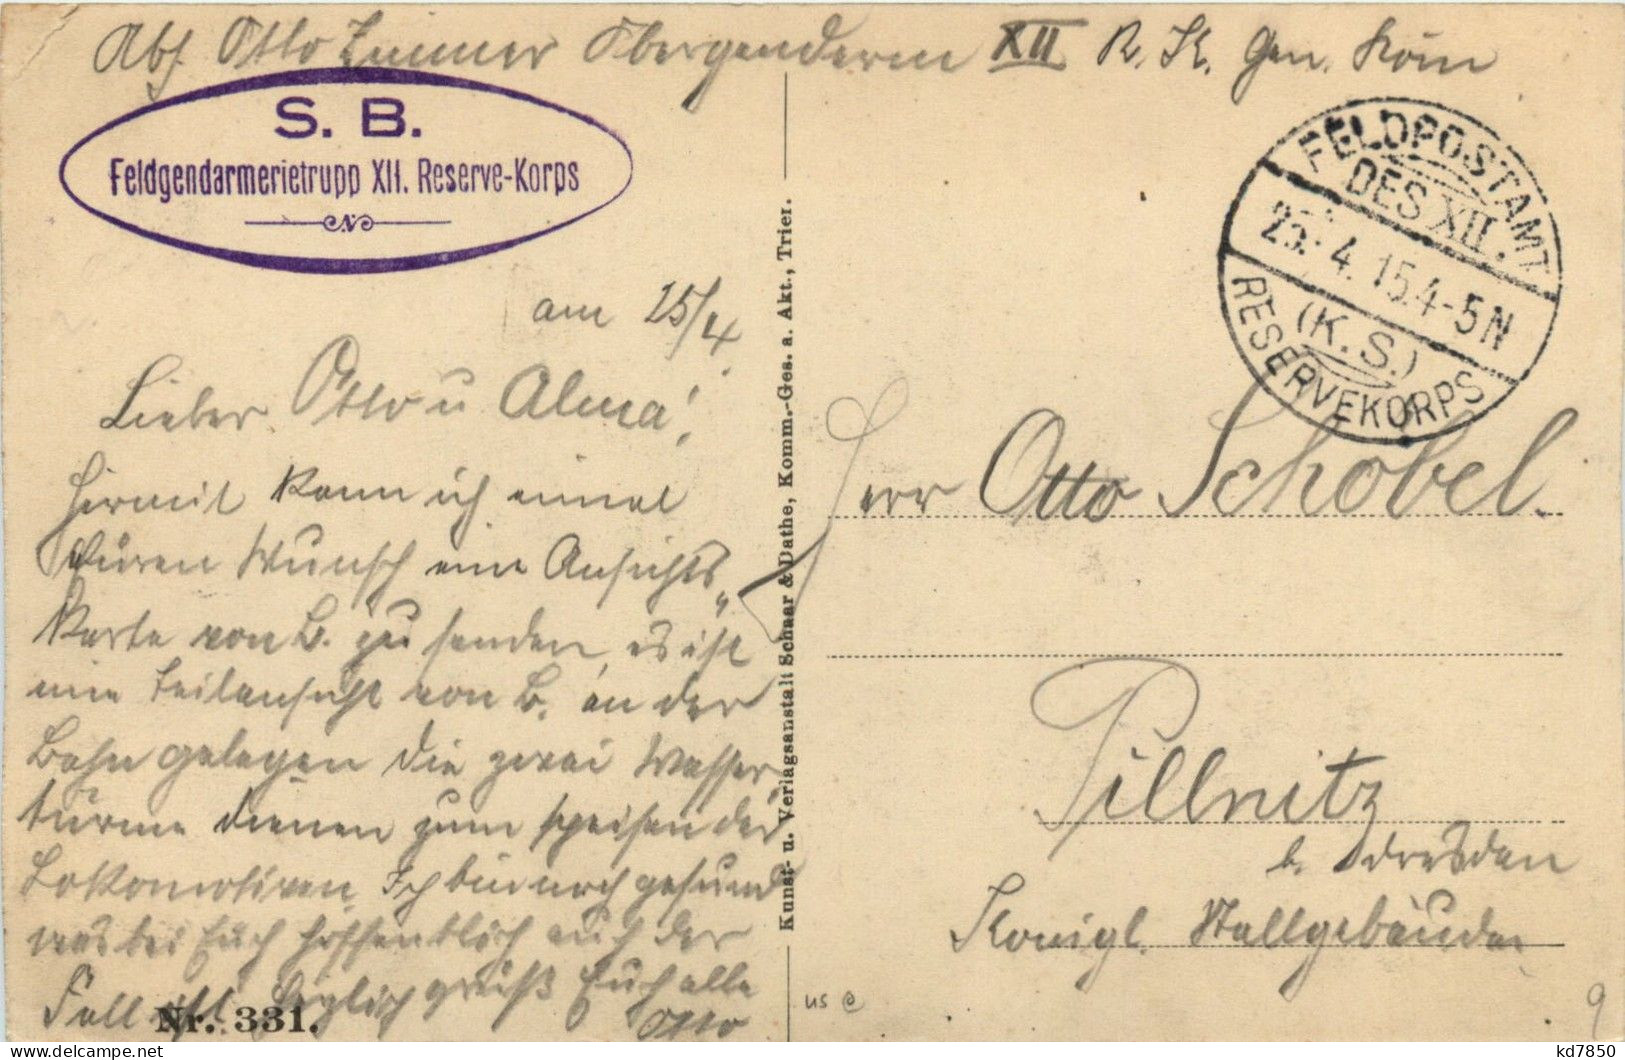 Abs. Otto Zimmer Obergenderm XII R. K. Gen. Kom
S. B.
Feldgendarmerietrupp XII. Reserve-Korps
FELDPOSTAMT
DES XII.
25. 4. 15. 4-5 N
(K. S.)
RESERVEKORPS
am 25/4.
Lieber Otto u Alma!
Hiermit kann ich einmal
Euren Wunsch eine Ansichts„
karte von B. zu senden, es ist
eine Teilansicht von B. an der
Bahn gelegen die zwei Wasser,
türme dienen zum speisen der
Lokomotiven. Ich bin noch gesund
was bei Euch hoffentlich auch der
Fall ist. Herzlich grüßt Euch alle
Otto
Nr. 331.
Kunst- u. Verlagsanstalt Schaar & Dathe, Komm.-Ges. a. Akt., Trier.
Herr Otto Schobel.
Pillnitz
b. Dresden
Königl. Stallgebäude
us e
9
kd7850